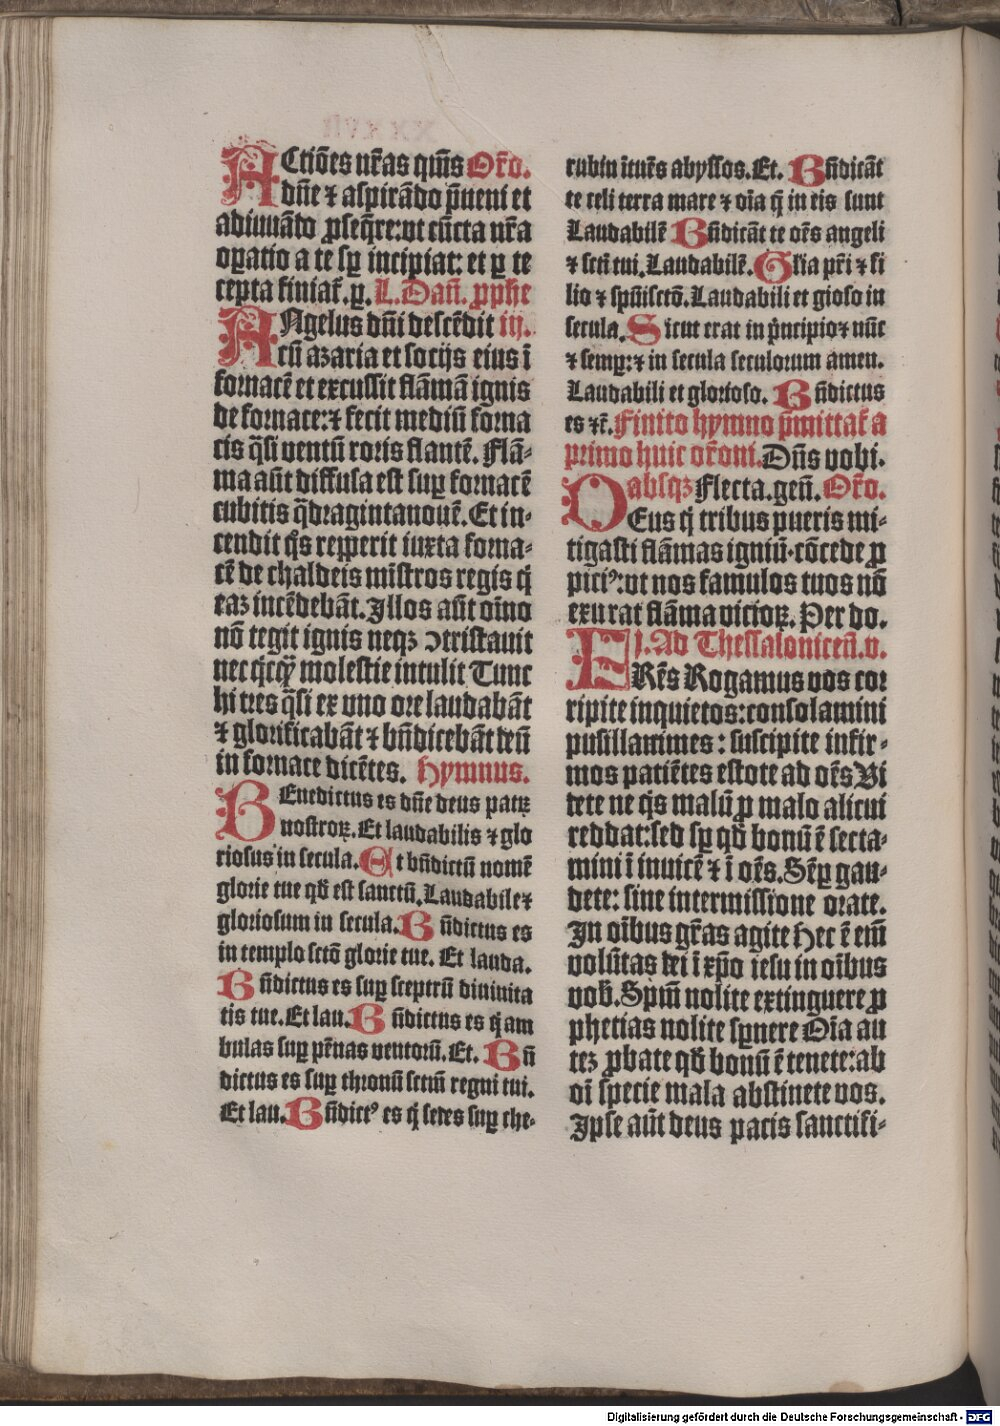 Actiões nr̃as qm̃s Or̃o.
dñe ⁊ aspirãdo p̃ueni et
adiuuãdo ꝓseq̃re:ut cũcta nr̃a
oꝑatio a te sꝑ incipiat: et ꝑ te
cepta finiat᷑.ꝑ. L. Dañ. ꝓphe
Angelus dñi descẽdit iij.
cũ azaria et socijs eius ĩ
fornacẽ et excussit flãmã ignis
de fornace:⁊ fecit mediũ forna
cis q̃si uentũ roris flantẽ. Flã-
ma aũt diffusa est suꝑ fornacẽ
cubitis q̃dragintanouẽ. Et in-
cendit q̃s repperit iuxta forna-
cẽ de chaldeis mĩstros regis q̃
eaꝫ incẽdebãt. Illos aũt oĩno
nõ tegit ignis neqꝫ ↄtristauit
nec q̃cq̃ molestie intulit Tunc
hi tres q̃si ex uno ore laudabãt
⁊ glorificabãt ⁊ bñdicebãt deũ
in fornace dicẽtes. Hymnus.
Benedictus es dñe deus patꝝ
nostroꝝ. Et laudabilis ⁊ glo
riosus in secula. Et bñdictũ nomẽ
glorie tue qđ est sanctũ. Laudabile ⁊
gloriosum in secula. Bñdictus es
in templo sctõ glorie tue. Et lauda.
Bñdictus es suꝑ sceptrũ diuinita
tis tue. Et lau. Bñdictus es q̃ am
bulas suꝑ pẽnas uentoꝝ. Et. Bñ
dictus es suꝑ thronũ sctm̃ regni tui.
Et lau. Bñdictꝰ es q̃ sedes suꝑ che-
rubin ĩtuẽs abyssos. Et. Bñdicãt
te celi terra mare ⁊ oĩa q̃ in eis sunt
Laudabilẽ Bñdicãt te oẽs angeli
⁊ scti tui. Laudabilẽ. Glĩa pr̃i ⁊ fi
lio ⁊ spũisctõ. Laudabili et gioso in
secula. Sicut erat in p̃ncipio ⁊ nũc
⁊ semꝑ: ⁊ in secula seculorum amen.
Laudabili et glorioso. Bñdictus
es ⁊c̃. Finito hymno p̃mittat᷑ a
primo huic or̃oni. Dñs uobi.
absqꝫ Flecta. geñ. Or̃o.
Deus q̃ tribus pueris mi-
tigasti flãmas igniũ·cõcede ꝓ
piciꝰ:ut nos famulos tuos nõ
exurat flãma uicioꝝ. Per do.
j. Ad Thessalonicen̄. v.
FRẽs Rogamus uos cor
ripite inquietos:consolamini
pusillanimes: suscipite infir-
mos patiẽtes estote ad oẽs Vi
dete ne q̃s malũ ꝓ malo alicui
reddat:sed sꝑ qđ bonũ ẽ secta-
mini ĩ inuicẽ ⁊ ĩ oẽs. Sẽꝑ gau-
dete: sine intermissione orate.
In oĩbus gr̃as agite Hec ẽ em̃
uolũtas dei ĩ xp̃o iesu in oĩbus
uob̃. Spm̃ nolite extinguere ꝓ
phetias nolite sꝑnere Oĩa au
teꝫ ꝓbate qđ bonũ ẽ tenete:ab
oĩ specie mala abstinete uos.
Ipse aũt deus pacis sanctifi-
Digitalisierung gefördert durch die Deutsche Forschungsgemeinschaft - DFG